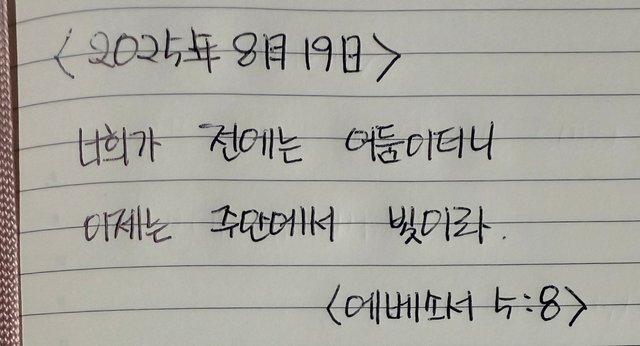 <2025年 8月 19日>
너희가 전에는 어둠이더니
이제는 주안에서 빛이라.
<에베소서 5:8>